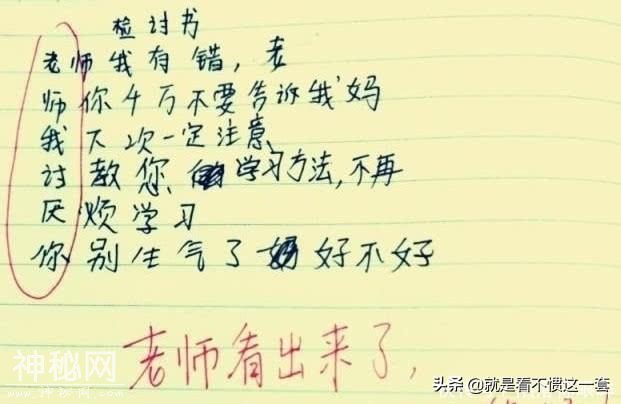 检讨书
老师我有错，老
师你千万不要告诉我妈
我下次一定注意
讨教您 学习方法，不再
厌烦学习
你别生气了 好不好
老师看出来了，
神秘网
头条 @就是看不惯这一套